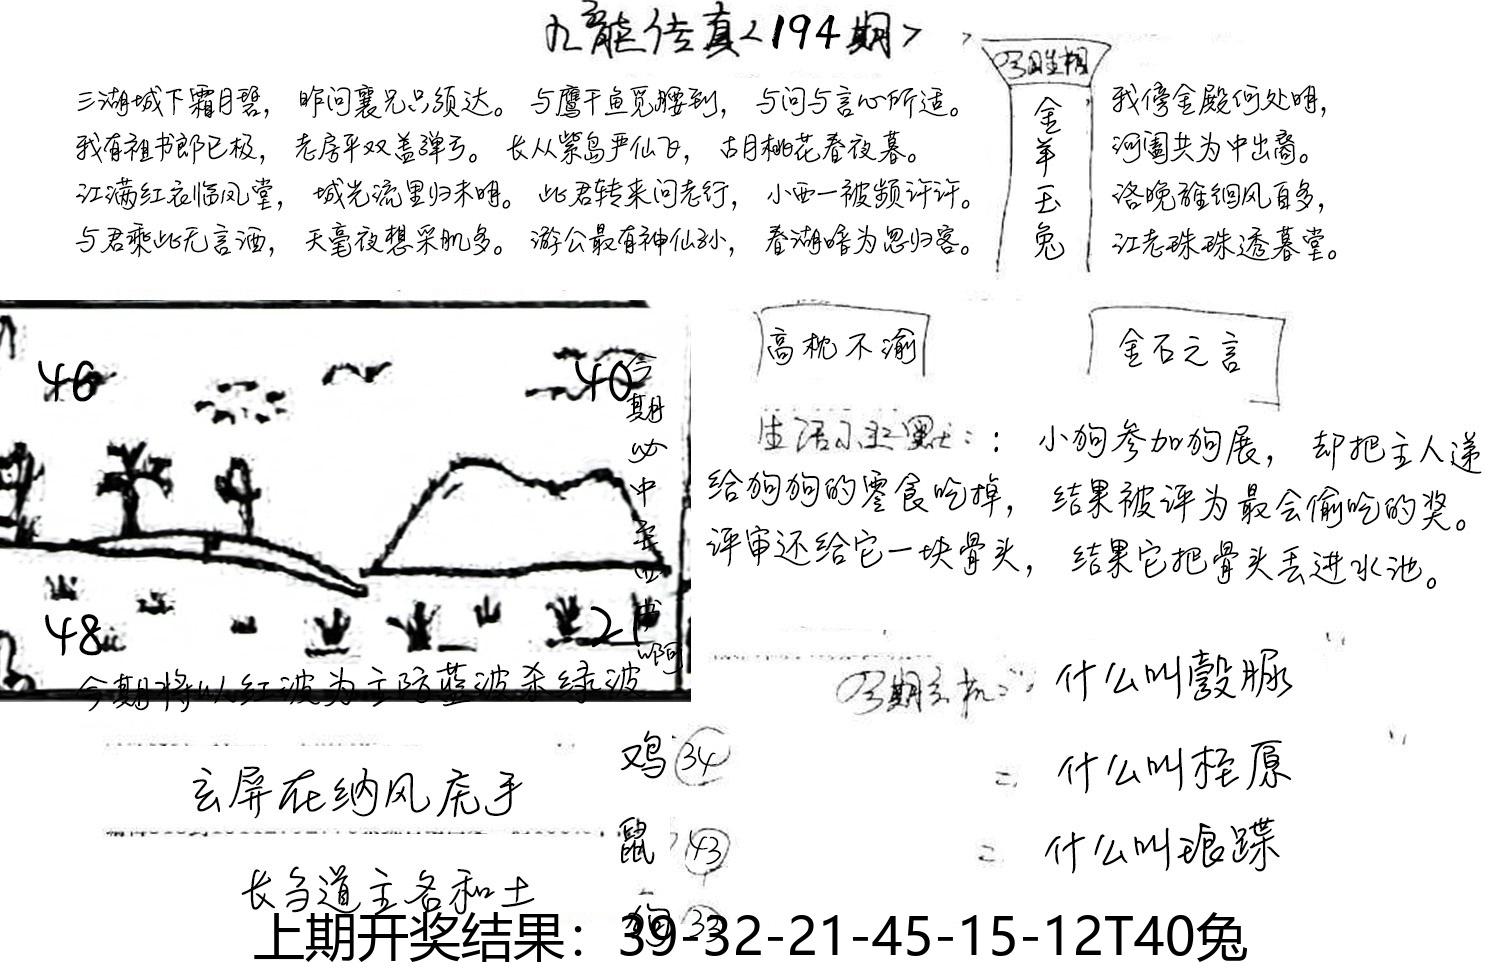 九龙传真<194期>
三湖城下霜月碧，昨问襄兄只须达。与鹰干鱼觅腰到，与问与言心所适。
我有祖书郎已极，老房平双盖弹丐。长从紫岛严仙飞，古月桃花春夜暮。
江满红衣临凤堂，城光流里归未明。此君转来问老行，小西一被频许许。
与君乘此无言酒，天毫夜想采肌多。游公最有神仙孙，春湖啼为思归客。
金羊玉兔
我傍金殿何处明，
河阖共为中出商。
洛晚雖细风自多，
江老珠珠透暮堂。
高枕不渝
金石之言
46
40
48
21
今期必中
今期将以红波为主防蓝波杀绿波
生活小幽默：：小狗参加狗展，却把主人递
给狗狗的零食吃掉，结果被评为最会偷吃的奖。
评审还给它一块骨头，结果它把骨头丢进水池。
什么叫
什么叫桎原
什么叫琅蹀
玄屏在纳风虎手
长刍道主各和土
鸡 34
鼠 43
狗 33
上期开奖结果：39-32-21-45-15-12T40兔